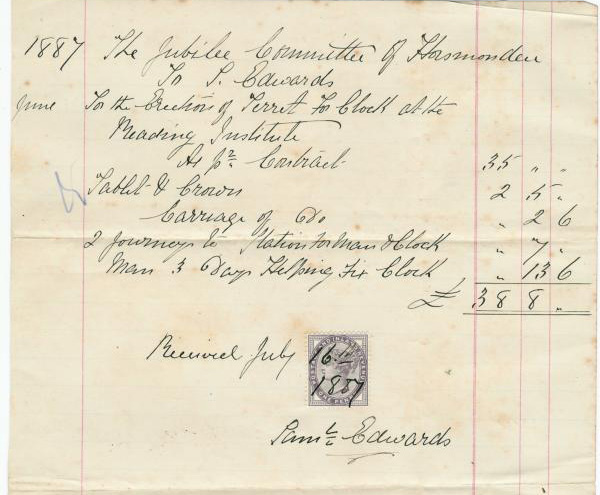 1887 The Jubilee Committee of Horsmonden
To S. Edwards
June To the Erection of Terret for Clock at the
Reading Institute
As pr. Contract 35 " "
Tablet & Crown 2 5 "
Carriage of Do " 2 6
2 Journeys to Station for Man & Clock " 7 "
Man 3 Days Helping Fix Clock " 13 6
£ 38 8 "
Received July 16th
1887
Saml Edwards